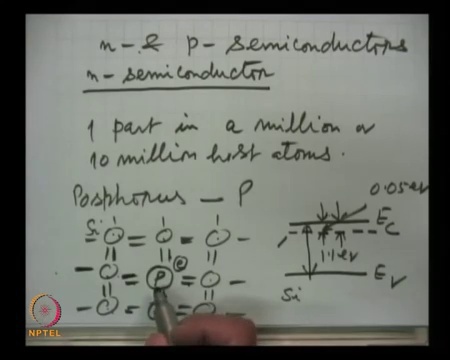 n- & p- semiconductors
n- semiconductor
1 part in a million or
10 million host atoms.
Posphorus - P
0.05 eV
Si
E_C
P
e
1.1 eV
E_V
Si
NPTEL